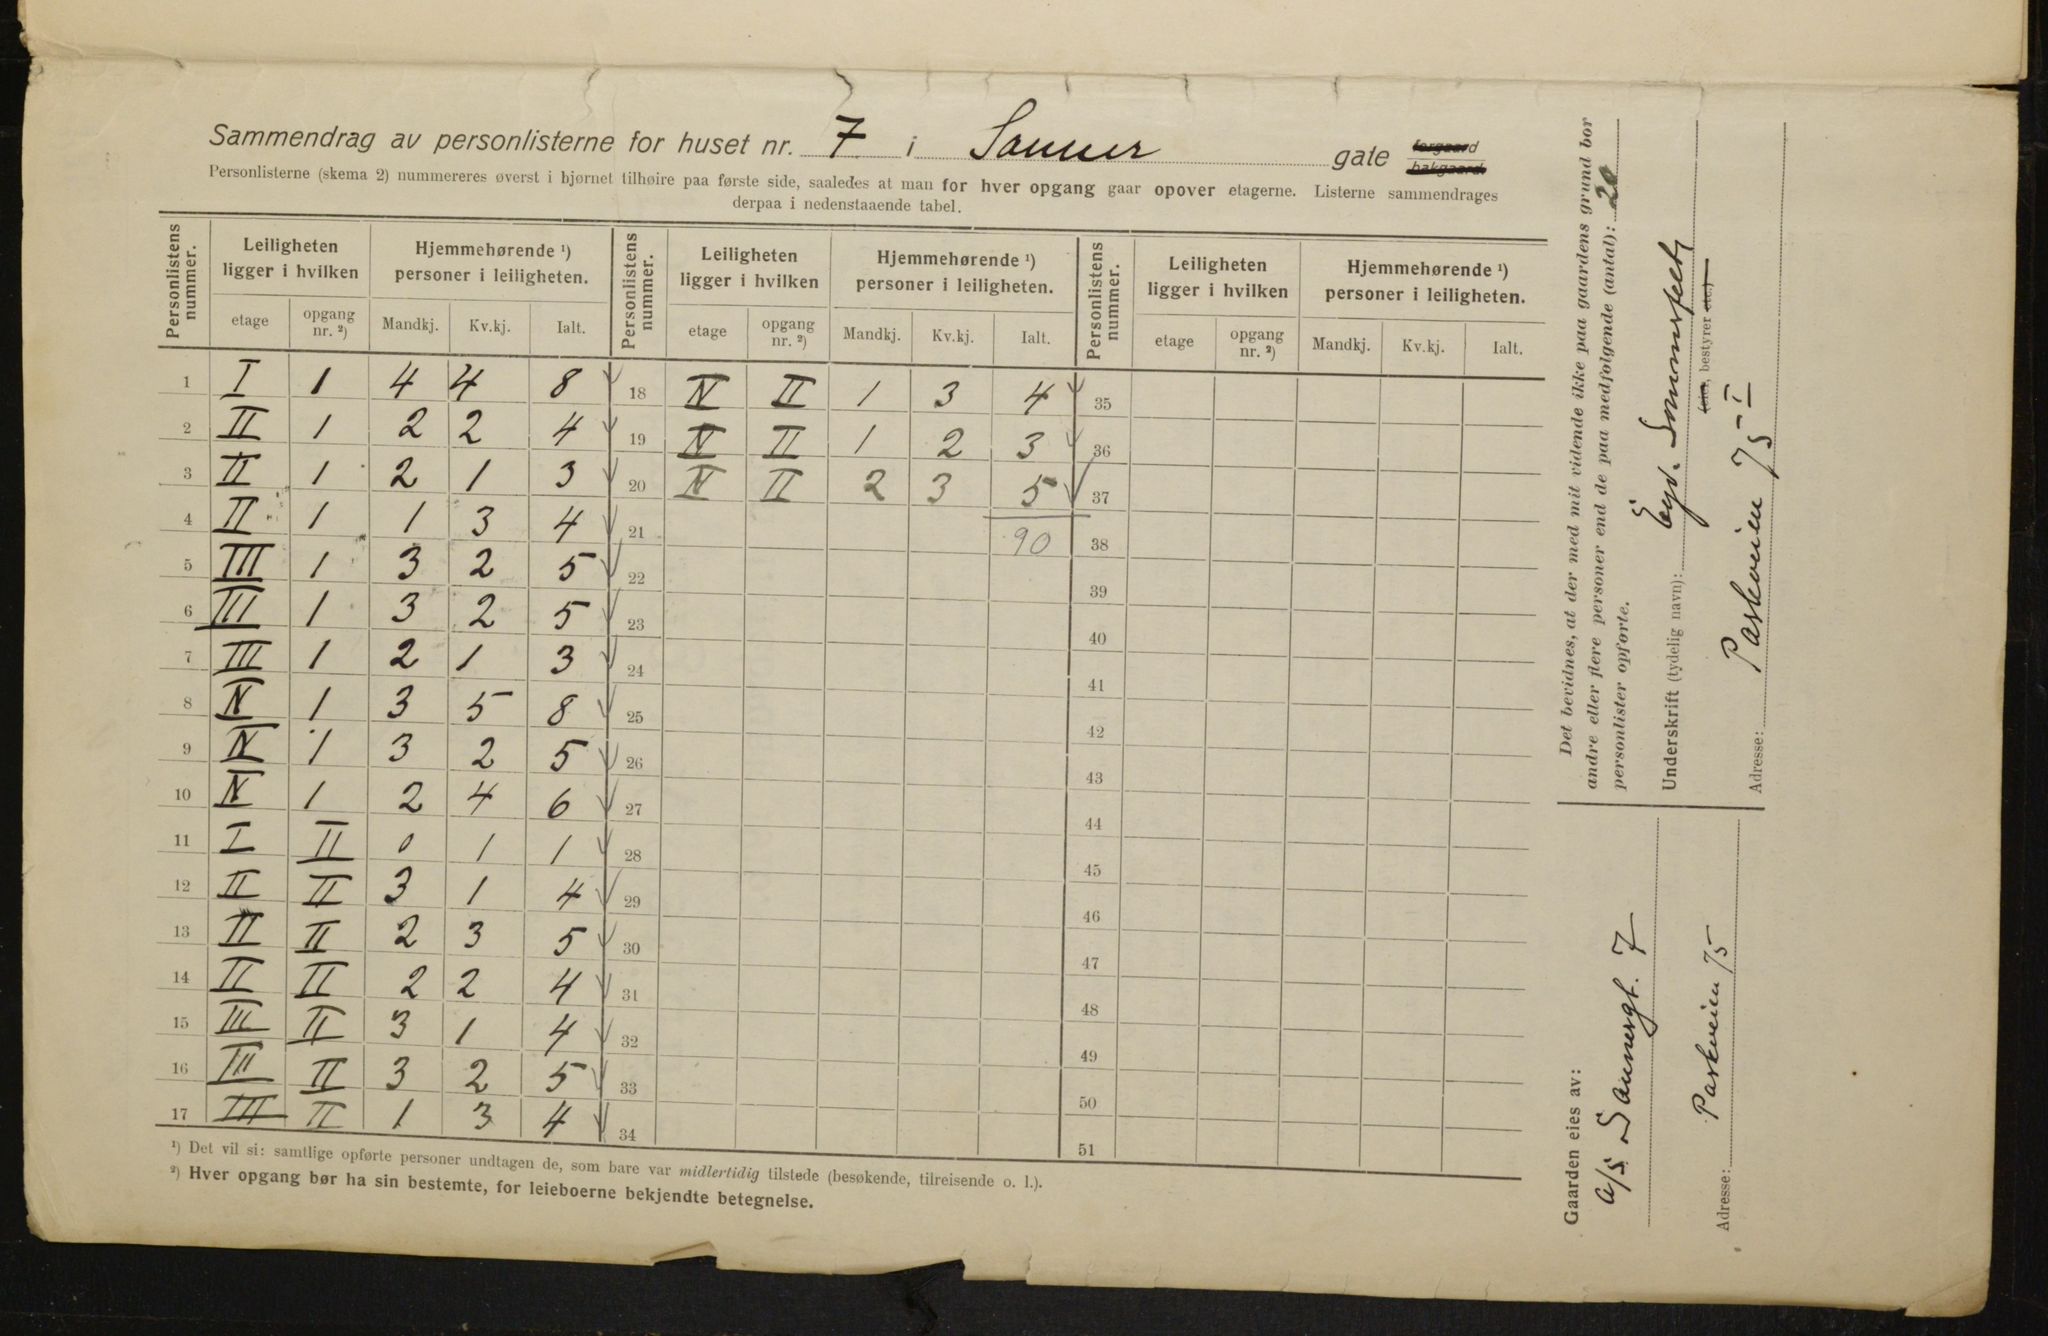 Sammendrag av personlisterne for huset nr. 7 i Sanner gate forgaard bakgaard.
Personlisterne (skema 2) nummereres øverst i hjørnet tilhøire paa første side, saaledes at man for hver opgang gaar opover etagerne. Listerne sammendrages
derpaa i nedenstaaende tabel.
Personlistens nummer. Leiligheten ligger i hvilken Hjemmehørende ¹) personer i leiligheten. Personlistens nummer. Leiligheten ligger i hvilken Hjemmehørende ¹) personer i leiligheten. Personlistens nummer. Leiligheten ligger i hvilken Hjemmehørende ¹) personer i leiligheten.
etage opgang nr. ²) Mandkj. Kv.kj. Ialt. etage opgang nr. ²) Mandkj. Kv.kj. Ialt. etage opgang nr. ²) Mandkj. Kv.kj. Ialt.
1 I 1 4 4 8 18 IV II 1 3 4 35
2 II 1 2 2 4 19 IV II 1 2 3 36
3 II 1 2 1 3 20 IV II 2 3 5 37
4 II 1 1 3 4 21 90 38
5 III 1 3 2 5 22 39
6 III 1 3 2 5 23 40
7 III 1 2 1 3 24 41
8 IV 1 3 5 8 25 42
9 IV 1 3 2 5 26 43
10 IV 1 2 4 6 27 44
11 I II 0 1 1 28 45
12 II II 3 1 4 29 46
13 II II 2 3 5 30 47
14 II II 2 2 4 31 48
15 III II 3 1 4 32 49
16 III II 3 2 5 33 50
17 III II 1 3 4 34 51
¹) Det vil si: samtlige opførte personer undtagen de, som bare var midlertidig tilstede (besøkende, tilreisende o. l.).
²) Hver opgang bør ha sin bestemte, for leieboerne bekjendte betegnelse.
Det bevidnes, at der med mit vidende ikke paa gaardens grund bor
andre eller flere personer end de paa medfølgende (antal): 20
personlister opførte.
Underskrift (tydelig navn): Sommerfelt
(eier, bestyrer etc.)
Adresse: Parkveien 75 I
Gaarden eies av:
A/S Sannergt. 7
Adresse: Parkveien 75